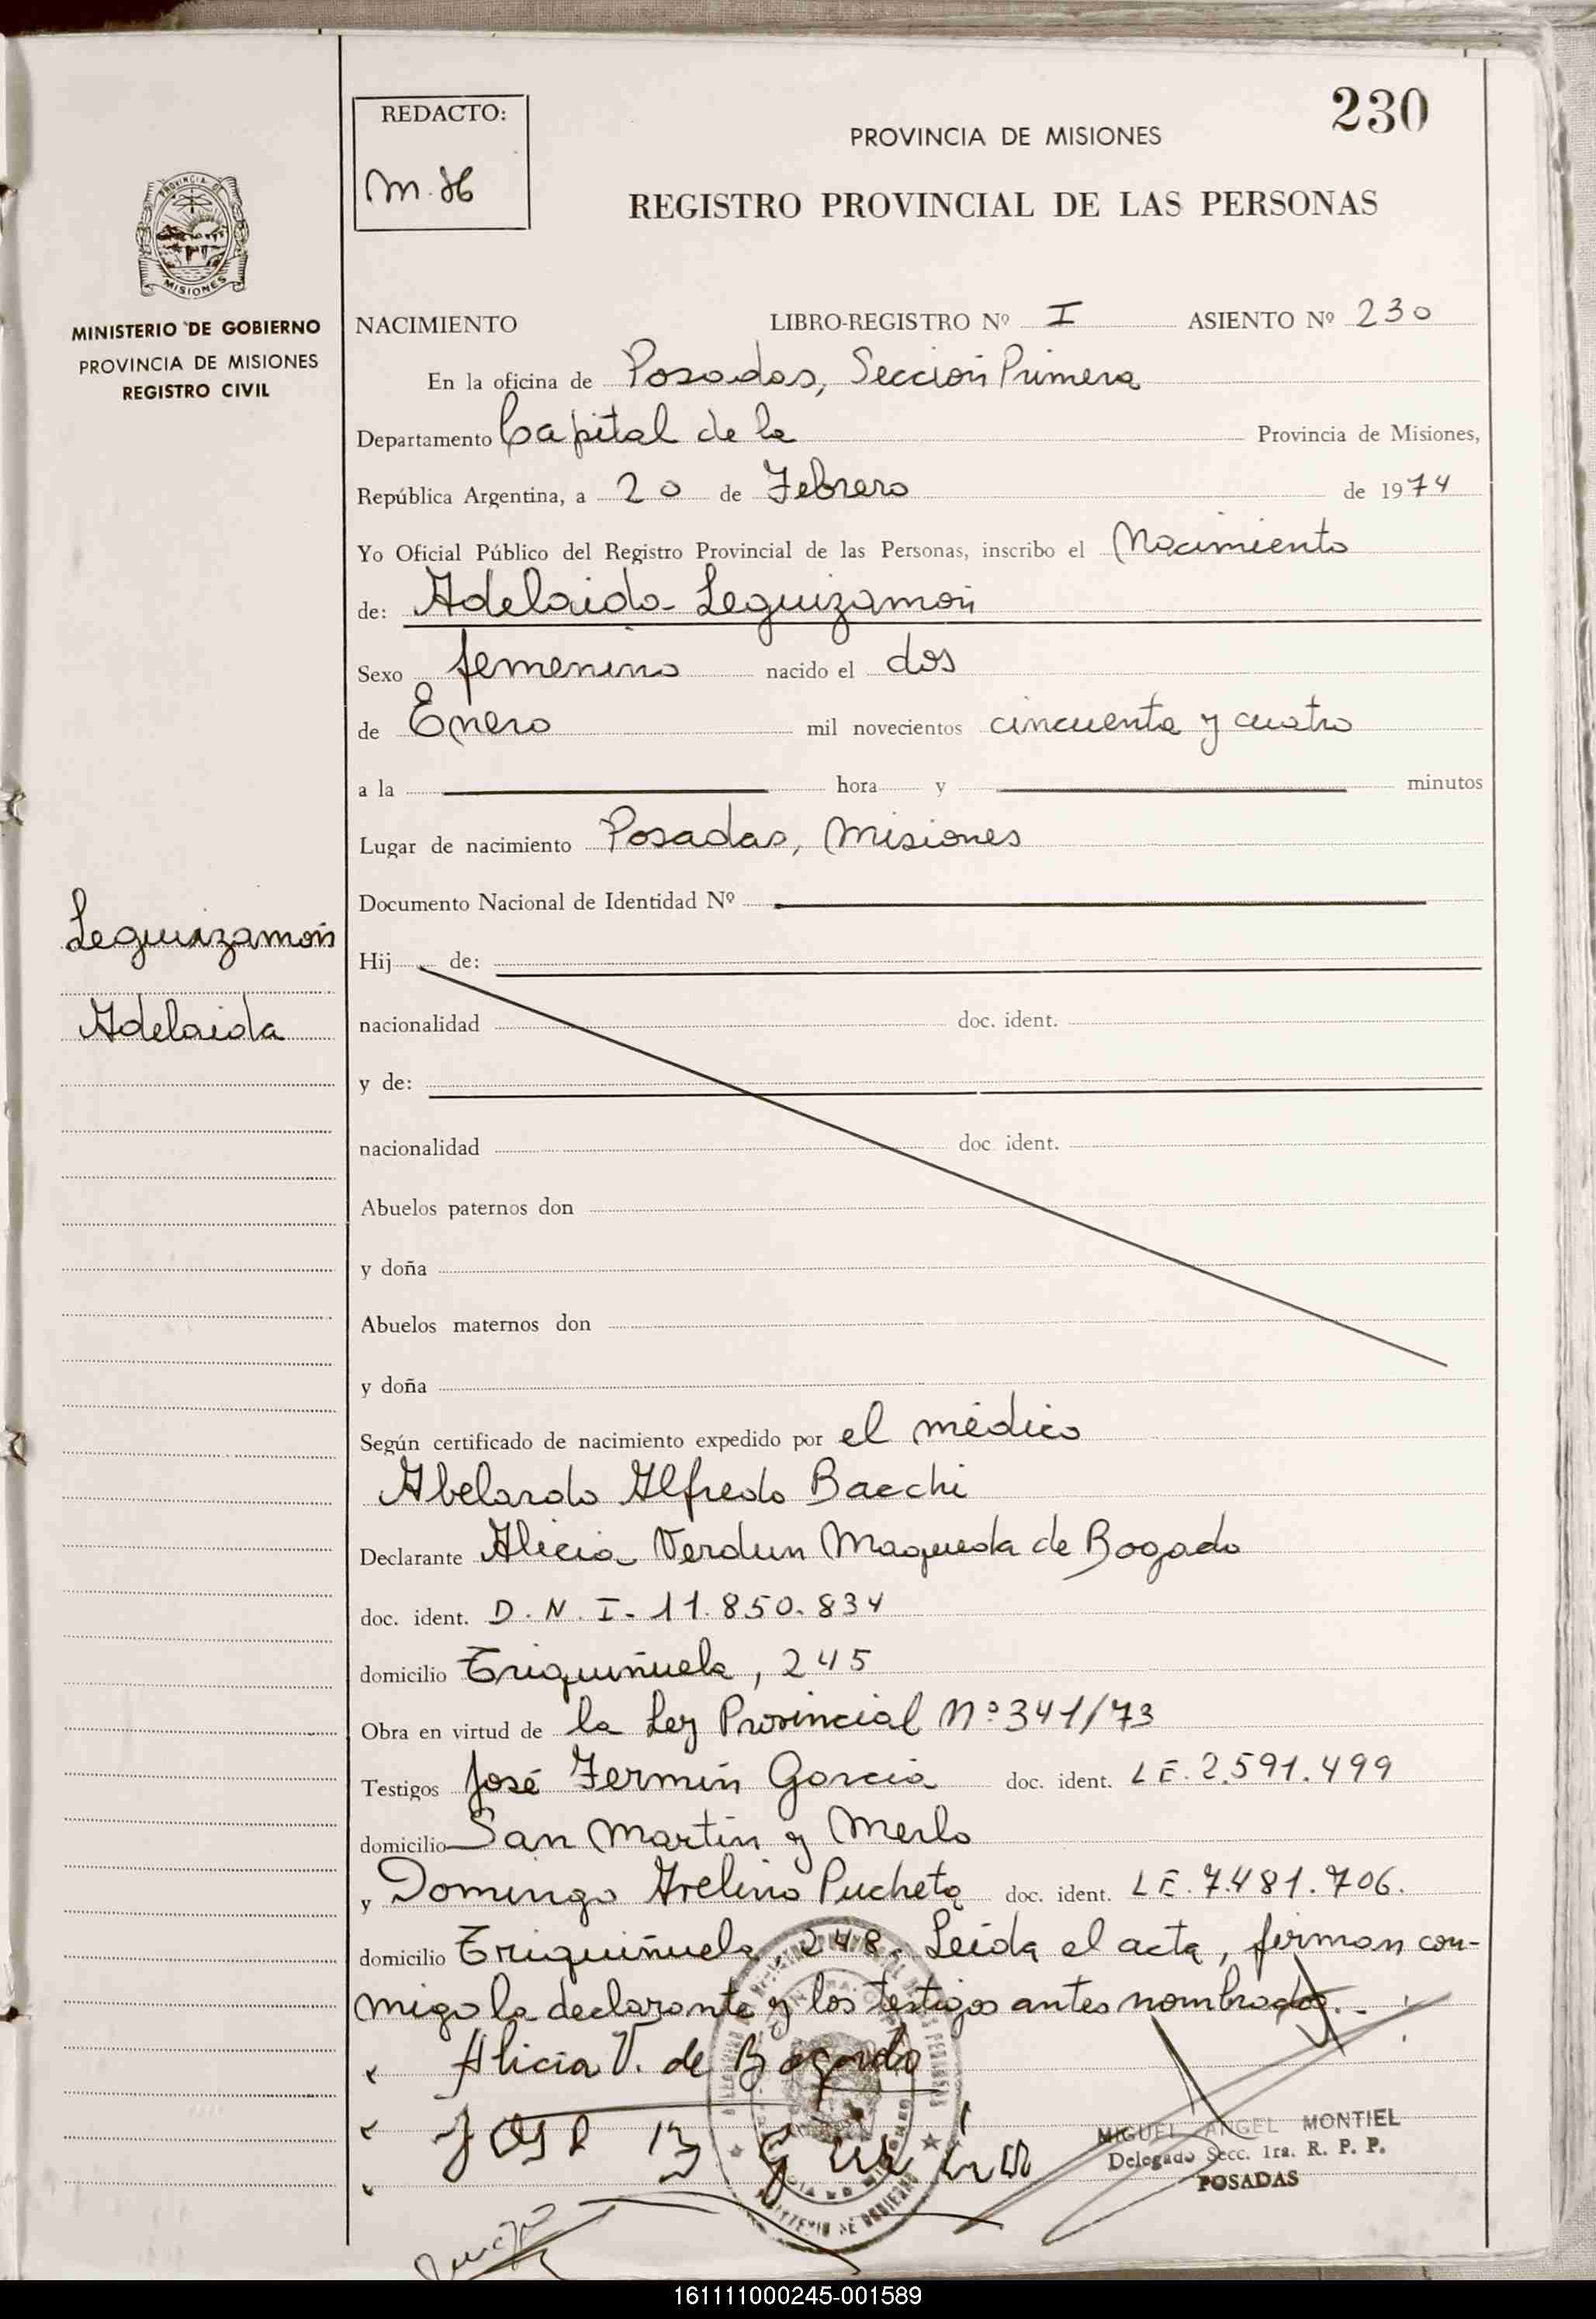 230
REDACTO:
M.H
PROVINCIA DE MISIONES
REGISTRO PROVINCIAL DE LAS PERSONAS
PROVINCIA DE
MISIONES
MINISTERIO DE GOBIERNO
PROVINCIA DE MISIONES
REGISTRO CIVIL
NACIMIENTO LIBRO-REGISTRO Nº I ASIENTO Nº 230
En la oficina de Posadas, Sección Primera
Departamento Capital de la Provincia de Misiones,
República Argentina, a 20 de Febrero de 1974
Yo Oficial Público del Registro Provincial de las Personas, inscribo el Nacimiento
de: Adelaida Leguizamón
Sexo femenino nacido el dos
de Enero mil novecientos cincuenta y cuatro
a la hora y minutos
Lugar de nacimiento Posadas, Misiones
Documento Nacional de Identidad Nº
Leguizamón
Adelaida
Hij de:
nacionalidad doc. ident.
y de:
nacionalidad doc ident.
Abuelos paternos don
y doña
Abuelos maternos don
y doña
Según certificado de nacimiento expedido por el médico
Abelardo Alfredo Bacchi
Declarante Alicia Verdun Maqueda de Bogado
doc. ident. D.N.I. 11.850.834
domicilio Triquiñuela, 245
Obra en virtud de la Ley Provincial Nº 341/73
Testigos José Fermín García doc. ident. LE. 2.591.499
domicilio San Martín y Merlo
y Domingo Avelino Pucheta doc. ident. LE. 7.481.706.
domicilio Triquiñuela, 248. Leída el acta, firman con-
migo la declarante y los testigos antes nombrados.-
Alicia V. de Bogado
MIGUEL ANGEL MONTIEL
Delegado Secc. 1ra. R. P. P.
POSADAS
161111000245-001589